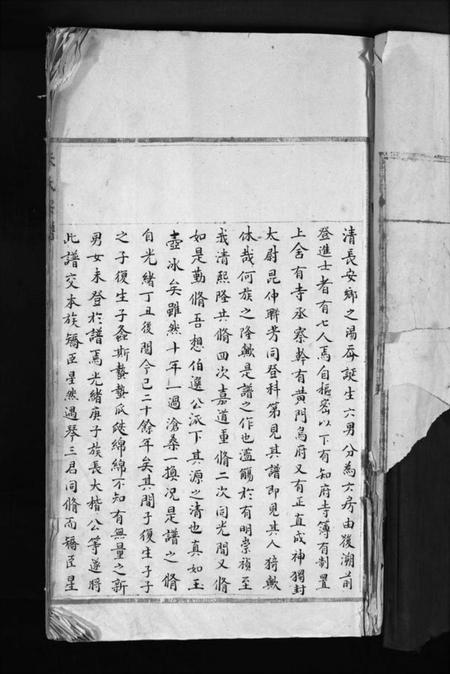 清長安鄉之湯齊誕生六男分為六房由後溯前
登進士者有七人焉自樞密以下有知府寺簿有制置
上舍有寺丞察幹有黃門烏府又有正直成神獨封
大尉昆仲聯芳同登科第見其譜即見其人猗歟
休哉何族之隆歟是譜之作也濫觴於有明崇禎至
我清熙隆共脩四次嘉道重脩二次同光間又脩
如是勤脩吾想伯選公派下其源之清也真如玉
壺冰矣雖然十年一過滄桑一換况是譜之脩
自光緒丁丑後間今已二十餘年矣其間子復生子子
之子復生子螽斯蟄蟄瓜瓞綿綿不知有無量之新
男女未登於譜焉光緒庚子族長大楷公等遂將
此譜交本族矯臣星然遇琴三君同脩而矯臣星